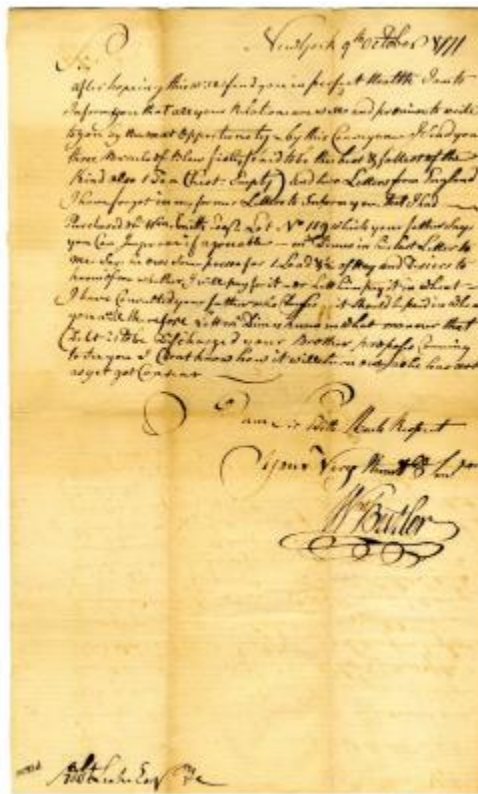 New York 9th October 1771
Sir
after hoping this will find you in perfect Health I am to
Inform you that all your Relations are well and promise to write
to you by the next Opportunety by this Conveyance I send you
three Barrels of Blew fish said to be the best & fattest of the
Kind also 1 Tea Chest Empty and two Letters from England
I have forgot in my former Letters to Inform you that I had
Purchased Lot No 119 which your father Says
you Can Improve if agreable in his last Letter to
me Says he owes Some person for 1 Load of Hay and Desires to
know from whether I will pay for it or let him pay it in wheat
I have Consulted your father who it should be paid in
you will therefore let know in what manner that
Debt is to be Discharged your Brother proposes Coming
to See you I Cant know how it will turn out as he has not
as yet got Consent
I am Sir With Much Respect
Your Very Humble
Wm Butler
Esqr